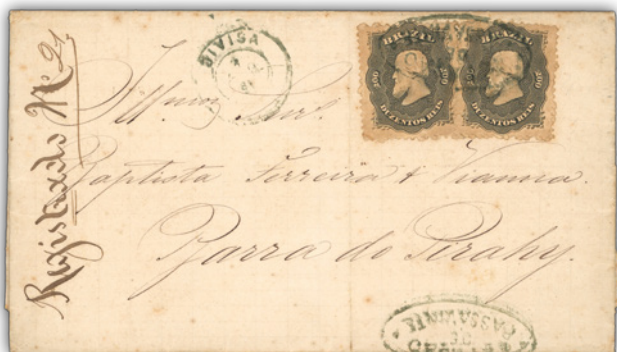 Registrado Nº 24
DIVISA
BRAZIL
200 200
DUZENTOS REIS
BRAZIL
200 200
DUZENTOS REIS
Illmos Snrs.
Baptista Ferreira & Vianna.
Barra do Pirahy.
DE
PASSAVINTE